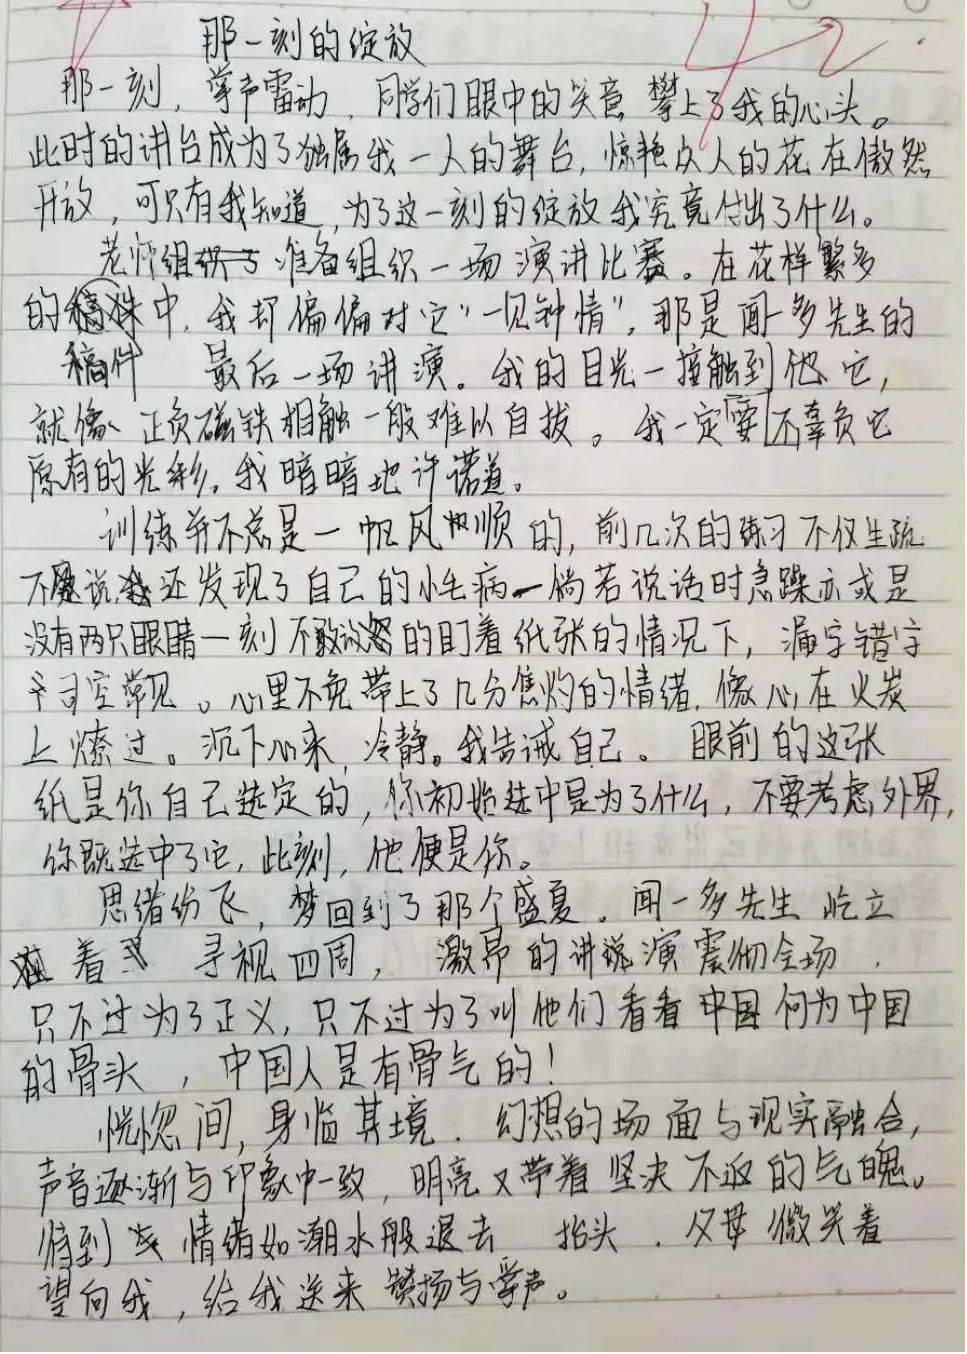 42
那一刻的绽放
那一刻，掌声雷动，同学们眼中的笑意攀上了我的心头。
此时的讲台成为了独属我一人的舞台，惊艳众人的花在傲然
开放，可只有我知道，为了这一刻的绽放我究竟付出了什么。
老师组织了准备组织一场演讲比赛。在花样繁多
的中，我却偏偏对它“一见钟情”，那是闻一多先生的
稿件 最后一场讲演。我的目光一接触到他它，
就像正负磁铁相触一般难以自拔。我一定要不辜负它
原有的光彩，我暗暗地许诺道。
训练并不总是一帆风顺的，前几次的练习不仅生疏
不说，我还发现了自己的小毛病—倘若说话时急躁亦或是
没有两只眼睛一刻不敢的盯着纸张的情况下，漏字错字
司空常见。心里不免带上了几分焦灼的情绪，像心在火炭
上燎过。沉下心来，冷静。我告诫自己。眼前的这张
纸是你自己选定的，你初始选中是为了什么，不要考虑外界，
你既选中了它，此刻，他便是你。
思绪纷飞，梦回到了那个盛夏。闻一多先生屹立
着 寻视四周，激昂的讲演震彻全场，
只不过为了正义，只不过为了叫他们看看中国何为中国
的骨头，中国人是有骨气的！
恍惚间，身临其境．幻想的场面与现实融合，
声音逐渐与印象中一致，明亮又带着坚决不返的气魄。
待到 情绪如潮水般退去 抬头．父母微笑着
望向我，给我送来赞扬与掌声。